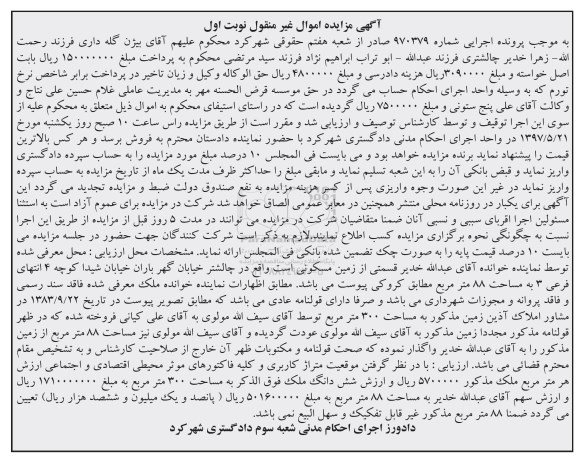 آگهی مزایده اموال غیر منقول نوبت اول
به موجب پرونده اجرایی شماره ۹۷۰۳۷۹ صادر از شعبه هفتم حقوقی شهرکرد محکوم علیهم آقای بیژن گله داری فرزند رحمت
الله- زهرا خدیر چالشتری فرزند عبدالله - ابو تراب ابراهیم نژاد فرزند سید مرتضی محکوم به پرداخت مبلغ ۱۵۰۰۰۰۰۰۰ ریال بابت
اصل خواسته و مبلغ ۳۰۹۰۰۰۰ ریال هزینه دادرسی و مبلغ ۴۸۰۰۰۰۰ ریال حق الوکاله وکیل و زیان تاخیر در پرداخت برابر شاخص نرخ
تورم که به وسیله واحد اجرای احکام حساب می گردد در حق موسسه قرض الحسنه مهر به مدیریت عاملی غلام حسین علی نتاج و
وکالت آقای علی پنج ستونی و مبلغ ۷۵۰۰۰۰۰ ریال گردیده است که در راستای استیفای محکوم به اموال ذیل متعلق به محکوم علیه از
سوی این اجرا توقیف و توسط کارشناس توصیف و ارزیابی شد و مقرر است از طریق مزایده راس ساعت ۱۰ صبح روز یکشنبه مورخ
۱۳۹۷/۵/۲۱ در واحد اجرای احکام مدنی دادگستری شهرکرد با حضور نماینده دادستان محترم به فروش برسد و هر کس بالاترین
قیمت را پیشنهاد نماید برنده مزایده خواهد بود و می بایست فی المجلس ۱۰ درصد مبلغ مورد مزایده را به حساب سپرده دادگستری
واریز نماید و قبض بانکی آن را به این شعبه تسلیم نماید و مابقی مبلغ را حداکثر ظرف مدت یک ماه از تاریخ مزایده به حساب سپرده
واریز نماید در غیر این صورت وجوه واریزی پس از کسر هزینه مزایده به نفع صندوق دولت ضبط و مزایده تجدید می گردد این
آگهی برای یکبار در روزنامه محلی منتشر همچنین در معابر عمومی الصاق خواهد شد شرکت در مزایده برای عموم آزاد است به استثنا
مسئولین اجرا اقربای سببی و نسبی آنان ضمنا متقاضیان شرکت در مزایده می توانند در مدت ۵ روز قبل از مزایده از طریق این اجرا
نسبت به چگونگی نحوه برگزاری مزایده کسب اطلاع نمایند.لازم به ذکر است شرکت کنندگان جهت حضور در جلسه مزایده می
بایست ۱۰ درصد قیمت پایه را به صورت چک تضمین شده بانکی فی المجلس ارائه نماید. مشخصات محل ارزیابی : محل معرفی شده
توسط نماینده خوانده آقای عبدالله خدیر قسمتی از زمین مسکونی است واقع در چالشتر خیابان گهر باران خیابان شیدا کوچه ۴ انتهای
فرعی ۳ به مساحت ۸۸ متر مربع مطابق کروکی پیوست می باشد. مطابق اظهارات نماینده خوانده ملک معرفی شده فاقد سند رسمی
و فاقد پروانه و مجوزات شهرداری می باشد و صرفا دارای قولنامه عادی می باشد که مطابق تصویر پیوست در تاریخ ۱۳۸۳/۹/۲۲ در
مشاور املاک آذین زمین مذکور به مساحت ۳۰۰ متر مربع توسط آقای سیف الله مولوی به آقای علی کیانی فروخته شده که در ظهر
قولنامه مذکور مجددا زمین مذکور به آقای سیف الله مولوی عودت گردیده و آقای سیف الله مولوی نیز مساحت ۸۸ متر مربع از زمین
مذکور را به آقای عبدالله خدیر واگذار نموده که صحت قولنامه و مکتوبات ظهر آن خارج از صلاحیت کارشناس و به تشخیص مقام
محترم قضائی می باشد. ارزیابی : با در نظر گرفتن موقعیت متراژ کاربری و کلیه فاکتورهای موثر محیطی اقتصادی و اجتماعی ارزش
هر متر مربع ملک مذکور ۵۷۰۰۰۰۰ ریال و ارزش شش دانگ ملک فوق الذکر به مساحت ۳۰۰ متر مربع به مبلغ ۱۷۱۰۰۰۰۰۰۰ ریال
و ارزش سهم آقای عبدالله خدیر به مساحت ۸۸ متر مربع به مبلغ ۵۰۱۶۰۰۰۰۰ ریال ( پانصد و یک میلیون و ششصد هزار ریال) تعیین
می گردد ضمنا ۸۸ متر مربع مذکور غیر قابل تفکیک و سهل البیع نمی باشد.
دادورز اجرای احکام مدنی شعبه سوم دادگستری شهرکرد